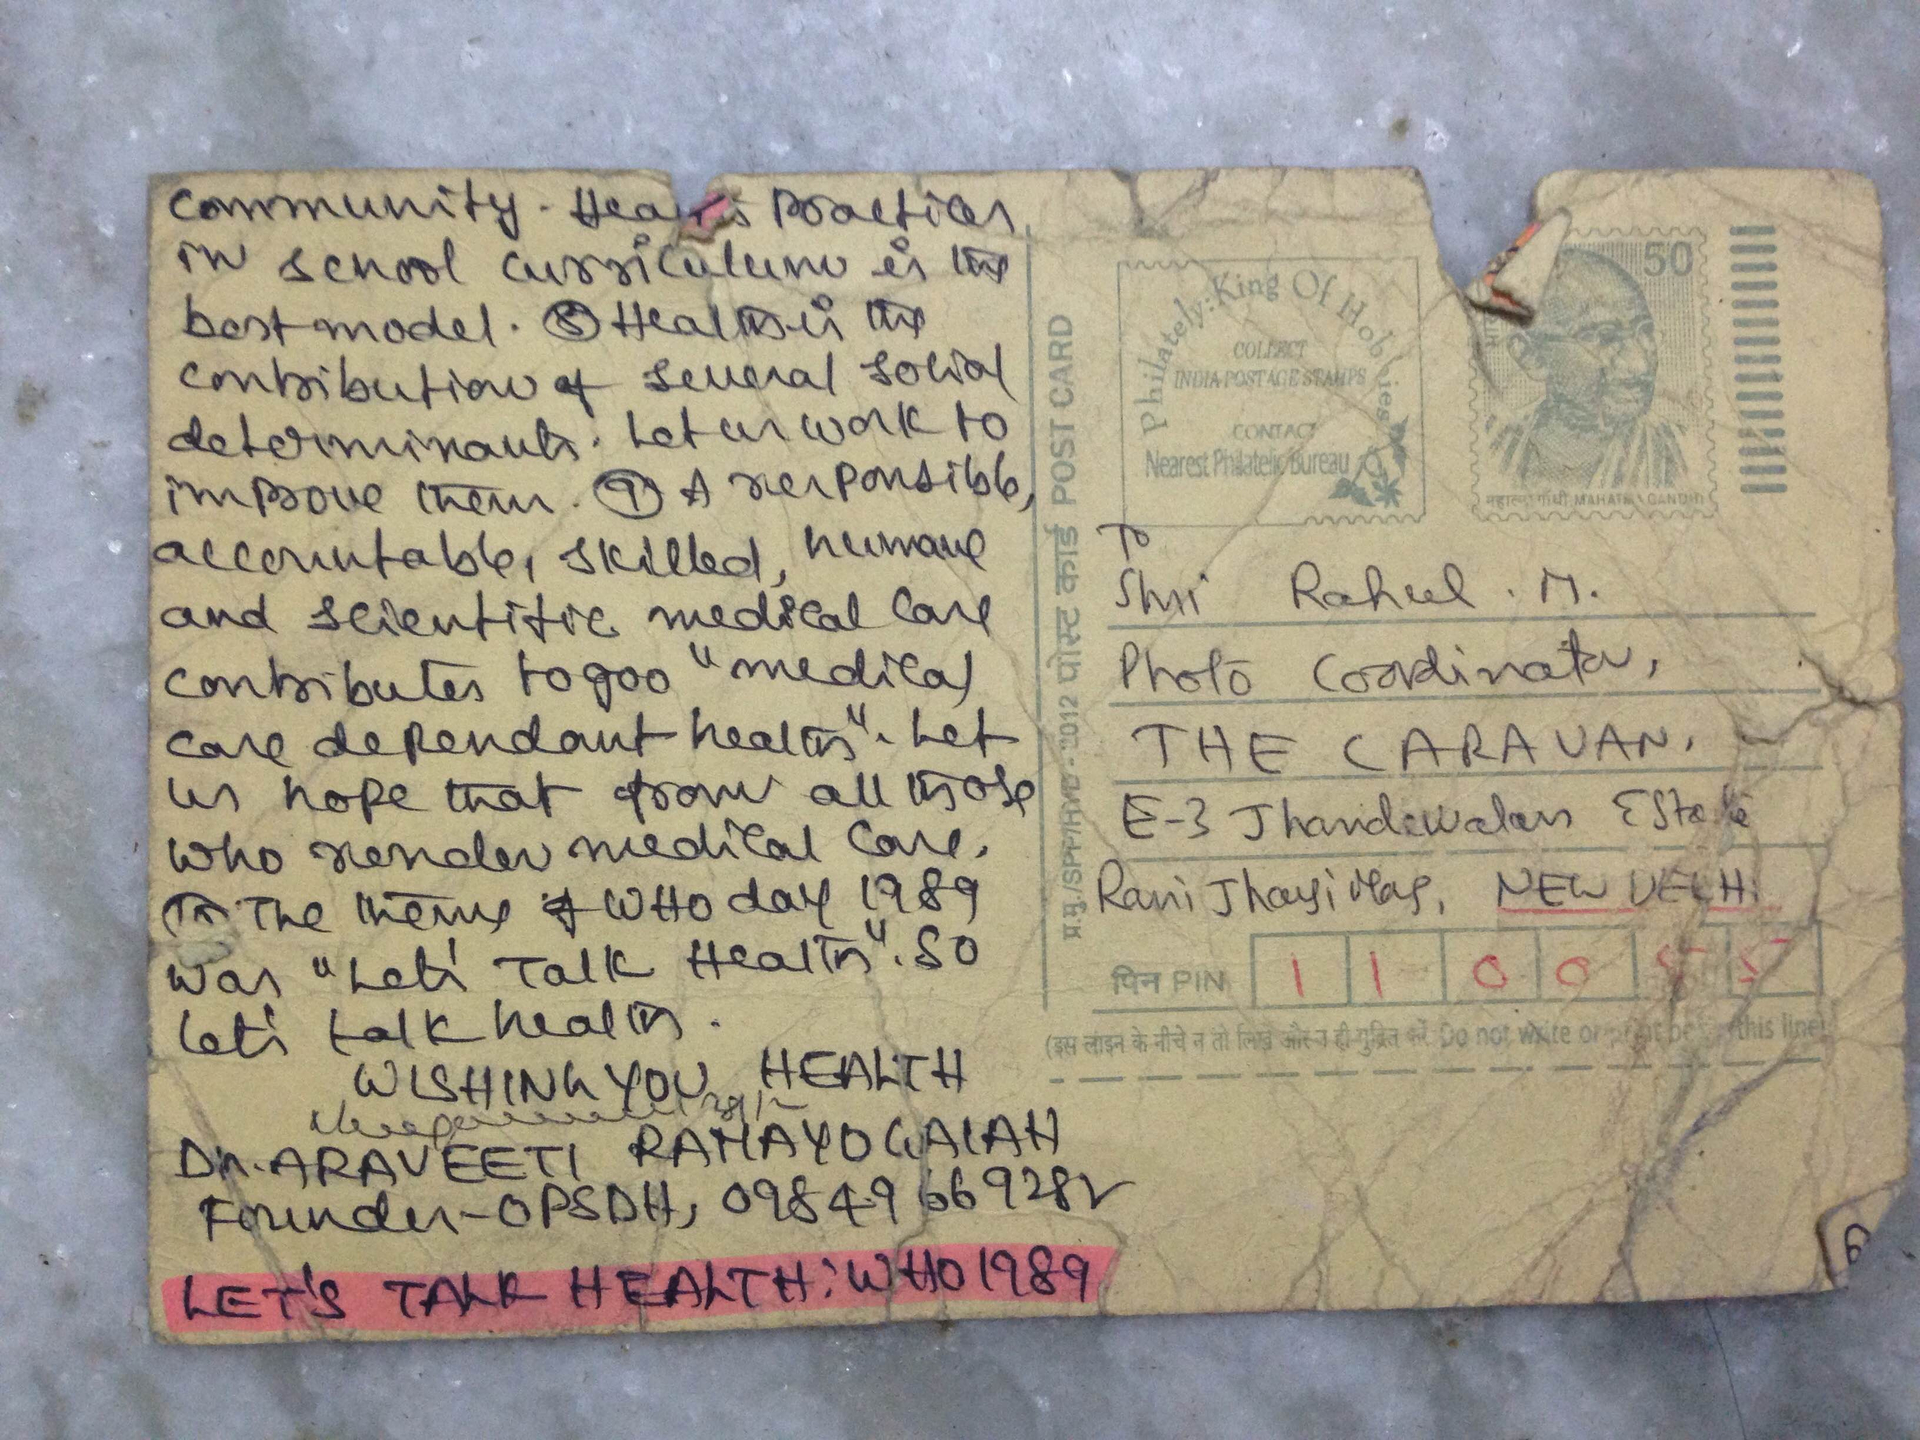 community. Health Practices
in school curriculum is the
best model. ⑧ Health is the
contribution of several social
determinants. Let us work to
improve them. ⑨ A responsible,
accountable, skilled, humane
and scientific medical care
contributes to good "medical
care dependant health". Let
us hope that from all those
who render medical care.
The theme of WHO day 1989
was "Let's Talk Health". So
let's talk health.
WISHING YOU HEALTH
Dr. ARAVEETI RAMAYOGAIAH
Founder-OPSDH, 09849669282
LET'S TALK HEALTH: WHO 1989
POST CARD
पोस्ट कार्ड
2012
Philately: King Of Hobbies
COLLECT
INDIA POSTAGE STAMPS
CONTACT
Nearest Philatelic Bureau
50
महात्मा गांधी MAHATMA GANDHI
To
Shri Rahul. M.
Photo Coordinator,
THE CARAVAN,
E-3 Jhandewalan Estate
Rani Jhansi Marg, NEW DELHI
पिन PIN 1 1 0 0 5 5
(इस लाइन के नीचे न तो लिखें और न ही मुद्रित करें Do not write or print below this line)